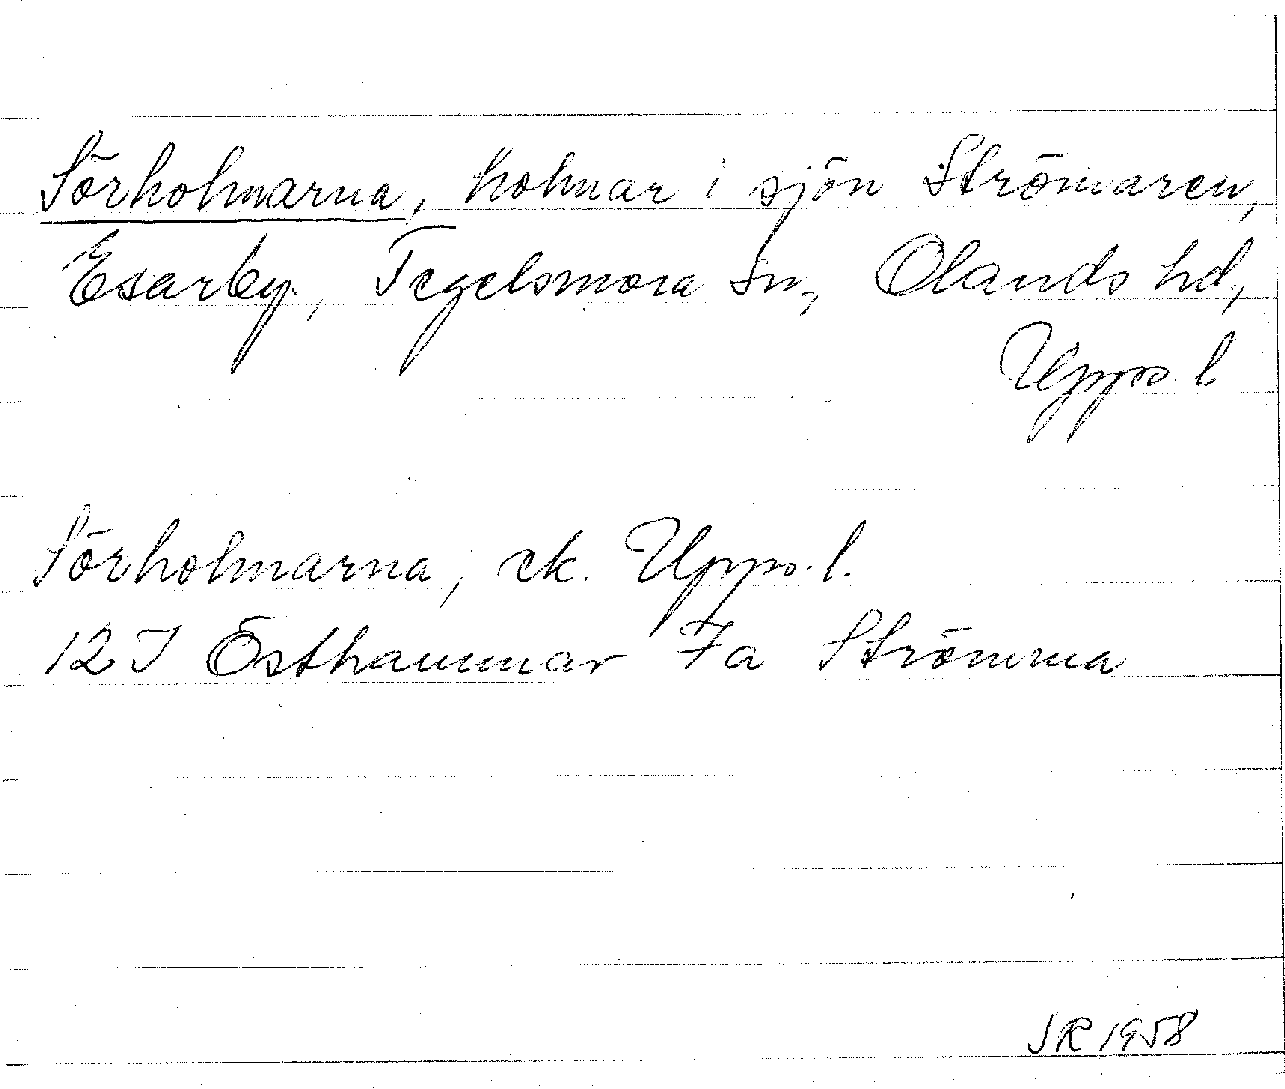 Sörholmarna, holmar i sjön Strömaren,
Esarby, Tegelsmora sn, Olands hd,
Upps. l
Sörholmarna, ek. Upps. l.
12 I Östhammar 7a Strömma
JR 1958